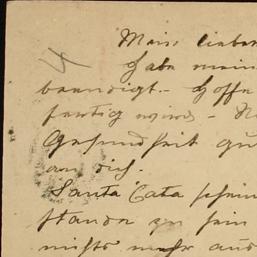 4
Mein lieber
Habe mein
beendigt. - Hoffe
fertig wird -
Gesundheit gu
an dich.
Santa Cata schein
stande zu sein
nichts mehr aus